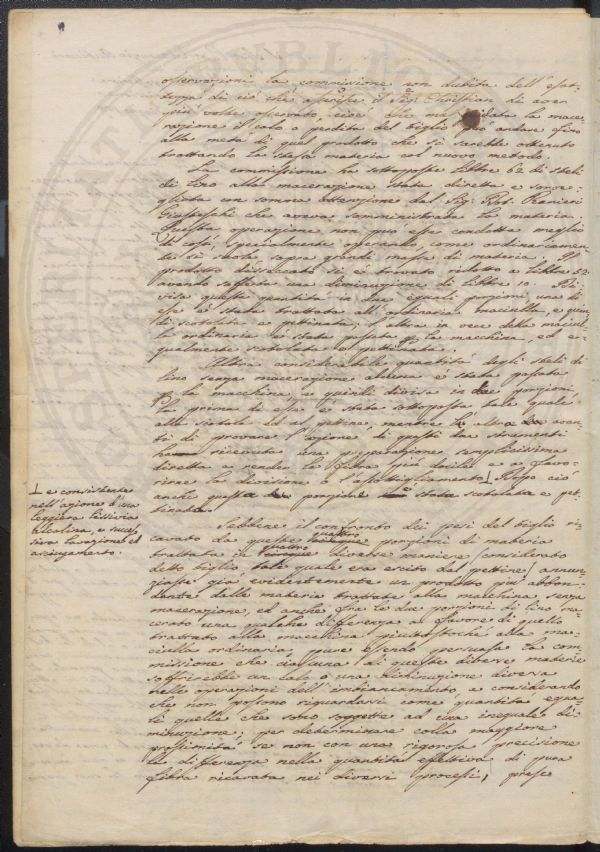 osservazioni la commissione non dubita dell'esat-
tezza di ciò che asserisce il Sig.r Christian di aver
più volte osservato, cioè che mal guidata la mace-
razione il calo o perdita del tiglio può andare fino
alla metà di quel prodotto che si sarebbe ottenuto
trattando la stessa materia col nuovo metodo.
La commissione ha sottoposte libbre 62 di steli
di lino alla macerazione stata diretta e sorve-
gliata con somma attenzione dal Sig. Ranieri
che aveva somministrata la materia.
Questa operazione non può esser condotta meglio
di così, specialmente operando, come ordinariamen-
te si suole, sopra grandi masse di materia. Il
prodotto disseccato si è trovato ridotto a libbre 52
avendo sofferta una diminuzione di libbre 10. Di-
visa questa quantità in due eguali porzioni, una di
esse è stata trattata all'ordinaria maciulla, e quin-
di scotolata e pettinata; l'altra in vece della maciul-
la ordinaria è stata passata per la macchina, ed e-
gualmente scotolata e pettinata.
Altra considerabile quantità degli steli di
lino senza macerazione alcuna è stata passata
per la macchina, e quindi divisa in due porzioni
la prima di esse è stata sottoposta tale quale
alla scotola ed al pettine, mentre l'altra avan-
ti di provare l'azione di questi due strumenti
ha ricevuta una preparazione semplicissima
diretta a render la fibra più docile e a favo-
rirne la divisione e l'assottigliamento. Dopo ciò
anche questa porzione è stata scotolata e pet-
tinata.
⊥ e consistente
nell'azione d'una
leggiera lissivia
alcalina, e succes-
siva lavazione ed
asciugamento.
Sebbene il confronto dei pesi del tiglio ri-
cavato da queste quattro porzioni di materia
trattata in quattro diverse maniere (considerato
detto tiglio tale quale era escito dal pettine) annun-
ziasse già evidentemente un prodotto più abbon-
dante dalle materie trattate alla macchina senza
macerazione, ed anche fra le due porzioni di lino ma-
cerato una qualche differenza a favore di quello
trattato alla macchina piuttostoche alla ma-
ciulla ordinaria; pure essendo persuasa la com-
missione che ciascuna di queste diverse materie
soffrirebbe un calo o una diminuzione diversa
nelle operazioni dell'imbiancamento, e considerando
che non possono riguardarsi come quantità egua-
li quelle che sono soggette ad una ineguale di-
minuzione; per determinare colla maggiore
prossimità se non con una rigorosa precisione
la differenza nella quantità effettiva di pura
fibra ricavata nei diversi processi, prese